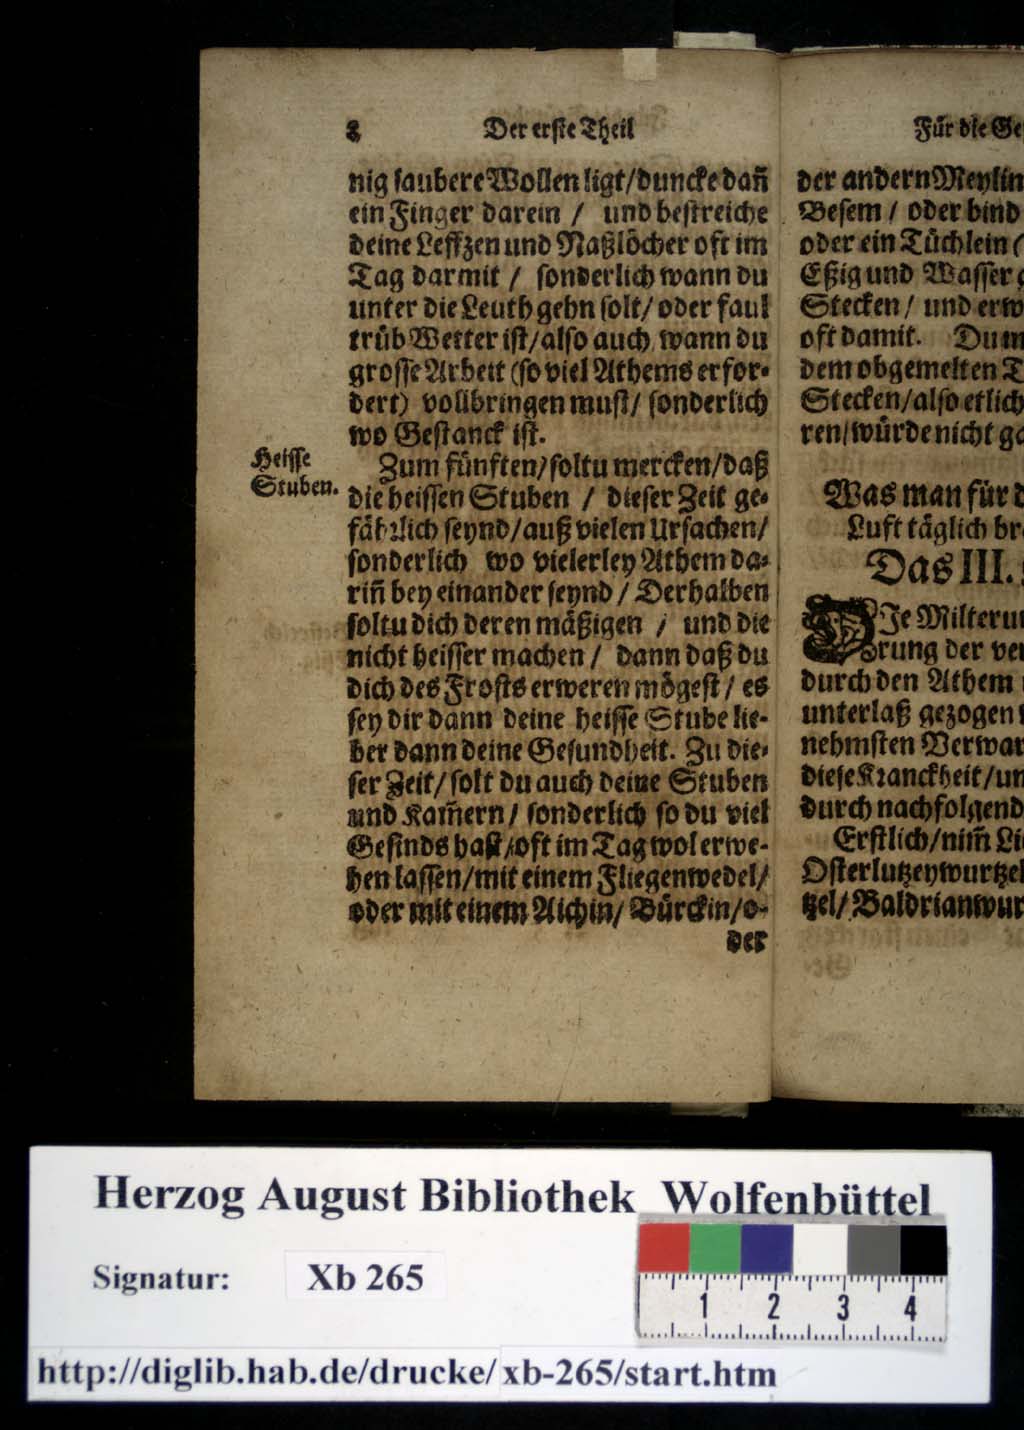 8 Der erste Theil
nig saubere Wollen ligt/duncke dañ
ein Finger darein / und bestreiche
deine Leffzen und Naßlöcher oft im
Tag darmit / sonderlich wann du
unter die Leuth gehn solt/ oder faul
trüb Wetter ist/also auch wann du
grosse Arbeit (so viel Athems erfor-
dert) vollbringen must/ sonderlich
wo Gestanck ist.
Heisse
Stuben.
Zum fünften/soltu mercken/daß
die heissen Stuben / dieser Zeit ge-
fährlich seynd/auß vielen Ursachen/
sonderlich wo vielerley Athem da-
riñ bey einander seynd / Derhalben
soltu dich deren mäßigen / und die
nicht heisser machen / dann daß du
dich des Frosts erweren mögest/ es
sey dir dann deine heisse Stube lie-
ber dann deine Gesundheit. Zu die-
ser Zeit/ solt du auch deine Stuben
und Kam̃ern / sonderlich so du viel
Gesinds hast/oft im Tag wol erwe-
hen lassen/mit einem Fliegenwedel/
oder mit einem Aichin/ Bürckin/o-
der
Für die Ge
der andern Meylin
Besem / oder bind
oder ein Tüchlein (
Eßig und Wasser
Stecken / und erw
oft damit. Du m
dem obgemelten T
Stecken/also etlich
ren/würde nicht ga
Was man für d
Luft täglich br
Das III.
DJe Milterun
rung der ver
durch den Athem
unterlaß gezogen
nehmsten Verwar
diese Kranckheit/un
durch nachfolgend
Erstlich/nim̃ Li
Osterlutzeywurtzel
tzel/ Baldrianwur
Herzog August Bibliothek Wolfenbüttel
Signatur: Xb 265
1 2 3 4
http://diglib.hab.de/drucke/xb-265/start.htm